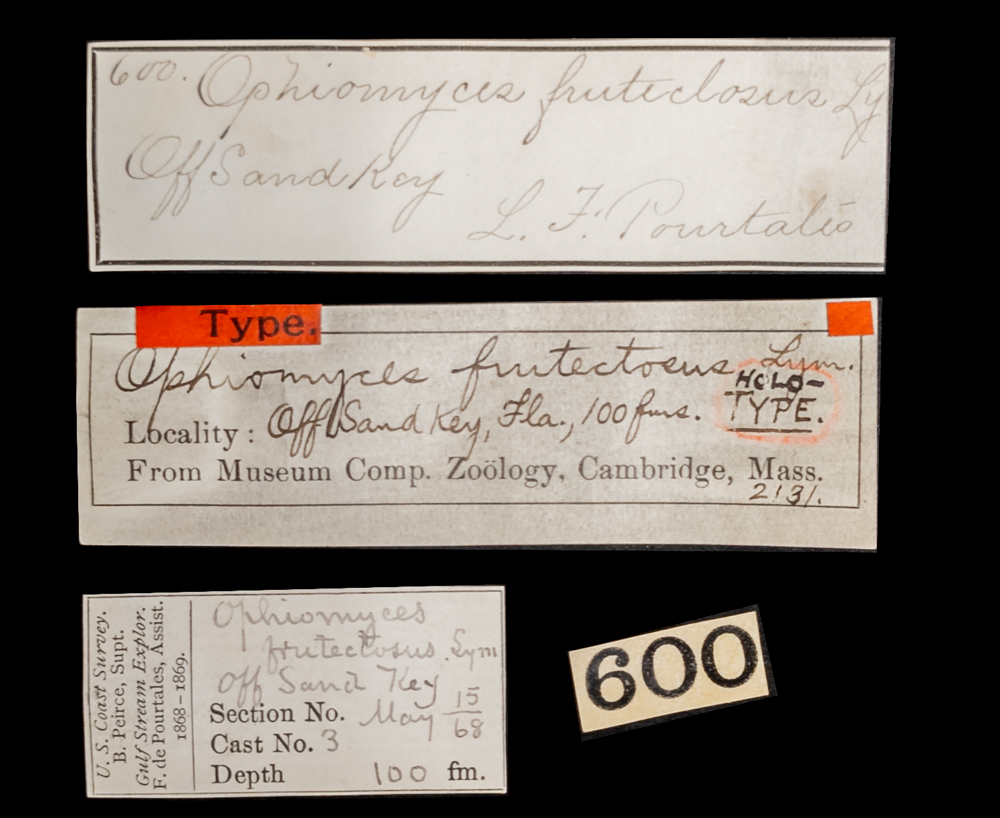 600. Ophiomyces fruteclosus Ly
Off Sand Key
L. F. Pourtalés
Type.
Ophiomyces frutectosus Lym.
HOLO-
TYPE.
Locality: Off Sand Key, Fla., 100 fms.
From Museum Comp. Zoölogy, Cambridge, Mass.
2131.
U. S. Coast Survey.
B. Peirce, Supt.
Gulf Stream Explor.
F. de Pourtales, Assist.
1868-1869.
Ophiomyces
frutectosus. Lym
Off Sand Key
Section No. May 15/68
Cast No. 3
Depth 100 fm.
600